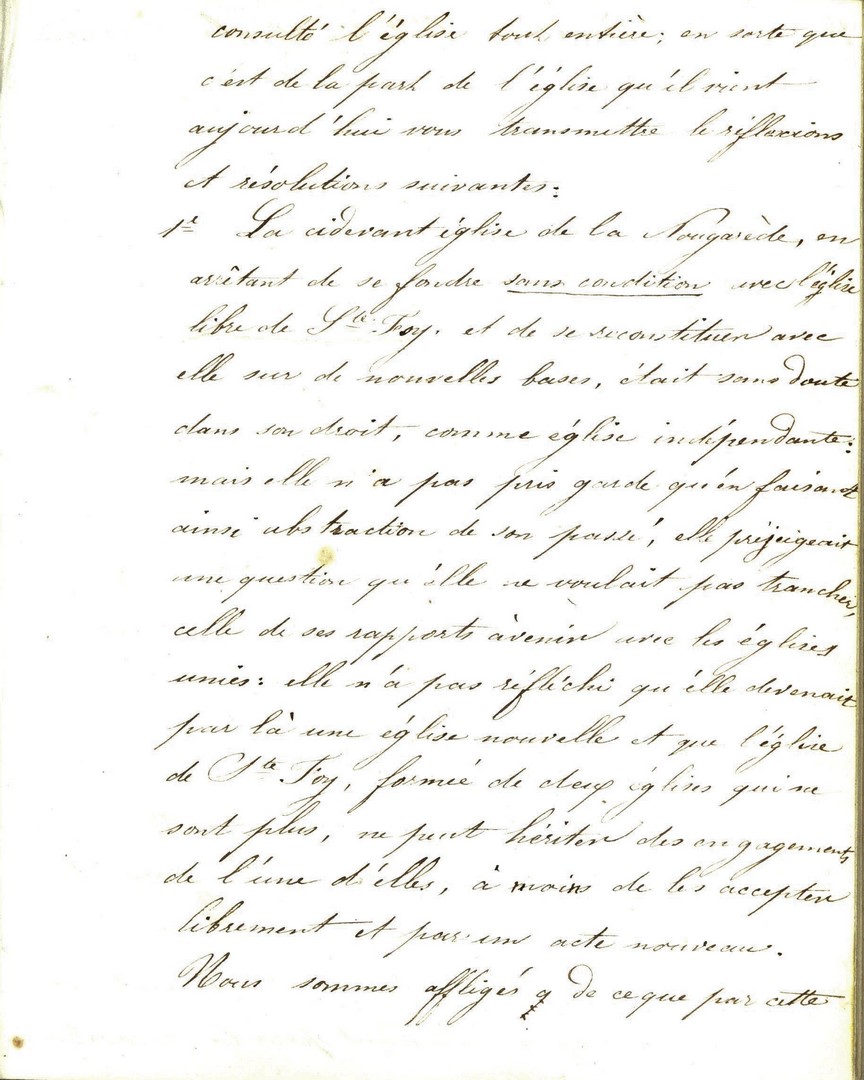 consulté l'église tout entière; en sorte que
c'est de la part de l'église qu'il vient
aujourd'hui vous transmettre le réflexions
et résolutions suivantes:
1e La cidevant église de la Nougarède, en
arrêtant de se fondre sans condition avec l'église
libre de Ste. Foy. et de se reconstituer avec
elle sur de nouvelles bases, était sans doute
dans son droit, comme église indépendante:
mais elle n'a pas pris garde qu'en faisant
ainsi abstraction de son passé, elle préjugeait
une question qu'elle ne voulait pas trancher,
celle de ses rapports àvenir avec les églises
unies: elle n'a pas réfléchi qu'elle devenait
par là une église nouvelle et que l'église
de Ste. Foy, formée de deux églises qui ne
sont plus, ne peut hériter des engagements
de l'une d'elles, à moins de les accepter
librement et par un acte nouveau.
Nous sommes affligés de ce que par cette